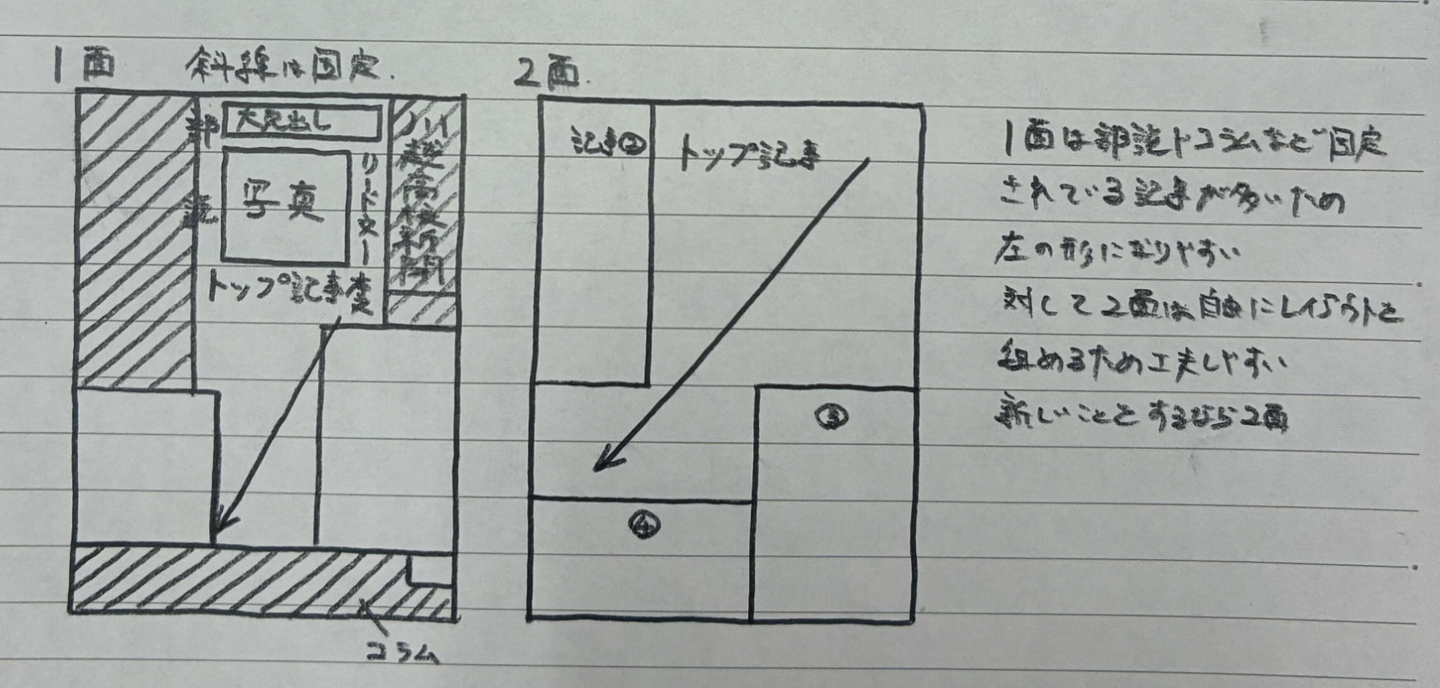 1面 斜線は固定.
大見出し
部説
写真
リード文
トップ記事
高校新聞
コラム
2面.
記事②
トップ記事
③
④
1面は部説やコラムなど固定
されている記事が多いため
左の形になりやすい
対して2面は自由にレイアウトを
組めるため工夫しやすい
新しいことをするなら2面